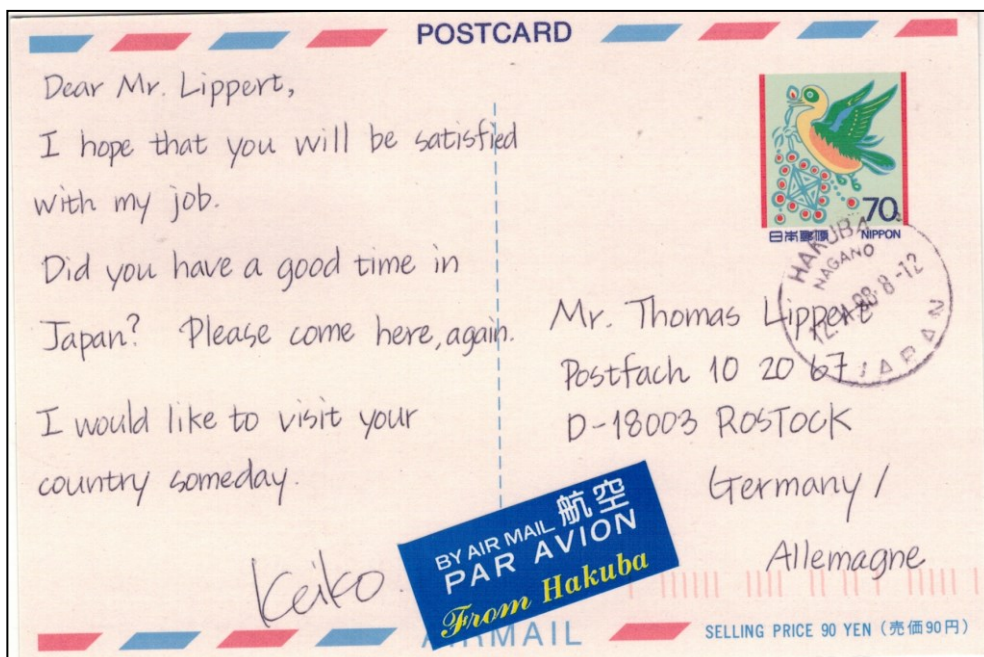 POSTCARD
Dear Mr. Lippert,
I hope that you will be satisfied
with my job.
Did you have a good time in
Japan? Please come here, again.
I would like to visit your
country someday.
Keiko
70
日本郵便 NIPPON
HAKUBA
NAGANO
98. 8-12
JAPAN
Mr. Thomas Lippert
Postfach 10 20 67
D-18003 ROSTOCK
Germany /
Allemagne
BY AIR MAIL 航空
PAR AVION
From Hakuba
AIRMAIL
SELLING PRICE 90 YEN (売価90円)